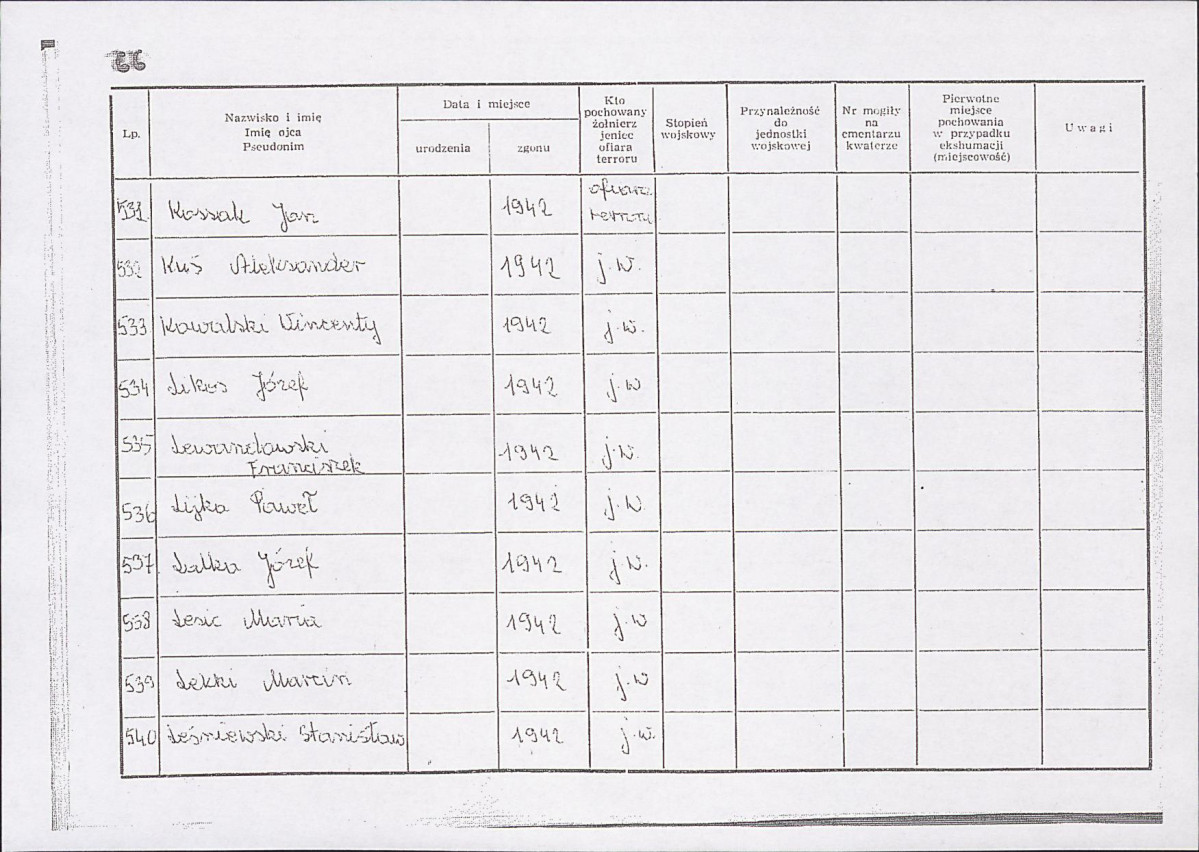 Lp.
Nazwisko i imię
Imię ojca
Pseudonim
Data i miejsce
urodzenia
zgonu
Kto
pochowany
żołnierz
jeniec
ofiara
terroru
Stopień
wojskowy
Przynależność
do
jednostki
wojskowej
Nr mogiły
na
cmentarzu
kwaterze
Pierwotne
miejsce
pochowania
w przypadku
ekshumacji
(miejscowość)
Uwagi
531. Kossak Jan 1942 ofiara
terroru
532 Kuś Aleksander 1942 j.w.
533 Kowalski Wincenty 1942 j.w.
534 Likus Józef 1942 j.w
535 Lewandowski 1942 j.w.
Franciszek
536 Liżka Paweł 1942 j.w.
537 Lalka Józef 1942 j.w.
538 Lesic Maria 1942 j.w
539 Lekki Marcin 1942 j.w
540 Leśniewski Stanisław 1942 j.w.